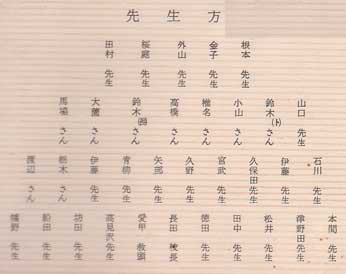 先生方
根本 先生
金子 先生
外山 先生
桜庭 先生
田村 先生
山口 先生
鈴木(ト) さん
小山 さん
椎名 さん
高橋 さん
鈴木 さん
大籠 さん
馬場 さん
石川 先生
伊藤 先生
久保田 先生
宮武 先生
久野 先生
矢部 先生
青柳 先生
伊藤 先生
栃木 さん
渡辺 さん
本間 先生
津野田 先生
松井 先生
田中 先生
徳田 先生
長田 校長
愛甲 教頭
高見沢 先生
坊田 先生
船田 先生
幡野 先生